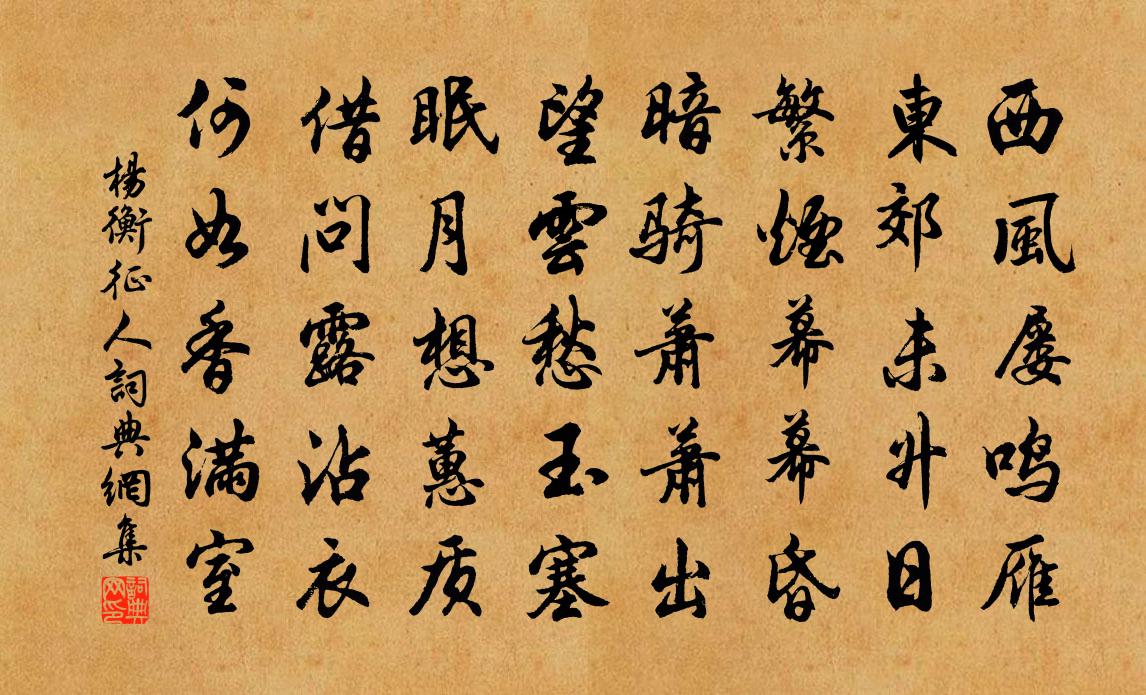 西風屡鳴雁
東郊未升日
繁煙幕幕昏
暗骑蕭蕭出
望雲愁玉塞
眠月想蕙质
借問露沾衣
何如香满室
楊衡征人詞典網集
詞典网印